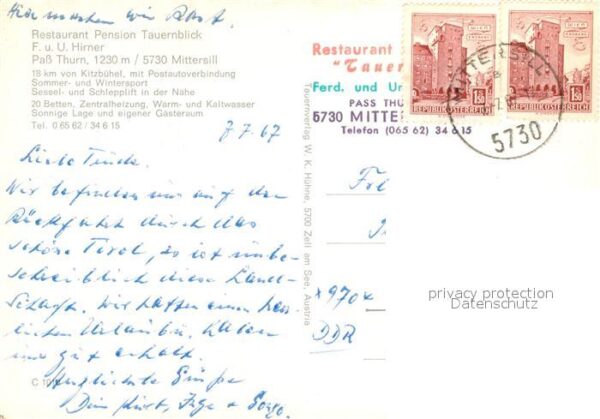 Hier machen wir Rast.
Restaurant Pension Tauernblick
F. u. U. Hirner
Paß Thurn, 1230 m / 5730 Mittersill
18 km von Kitzbühel, mit Postautoverbindung
Sommer- und Wintersport
Sessel- und Schlepplift in der Nähe
20 Betten, Zentralheizung, Warm- und Kaltwasser
Sonnige Lage und eigener Gasteraum
Tel. 0 65 62 / 34 6 15
7.7.67
Liebe Trude.
Wir befinden uns auf der
Rückfahrt durch das
schöne Tirol, es ist unbe-
schreiblich diese Land-
schaft. Wir hatten einen herr-
lichen Urlaub, haben
uns gut erholt.
Herzlichste Grüße
Dein Kurt, Inge +
C 10
Tauernverlag W. K. Hühne, 5700 Zell am See, Austria
Restaurant
"Tauer
Ferd. und Ur
PASS THU
5730 MITTER
Telefon (065 62) 34 6 15
WIEN
REPUBLIK ÖSTERREICH
1.50
WIEN
REPUBLIK ÖSTERREICH
1.50
MITTERSILL
5730
x 970x
DDR
privacy protection
Datenschutz